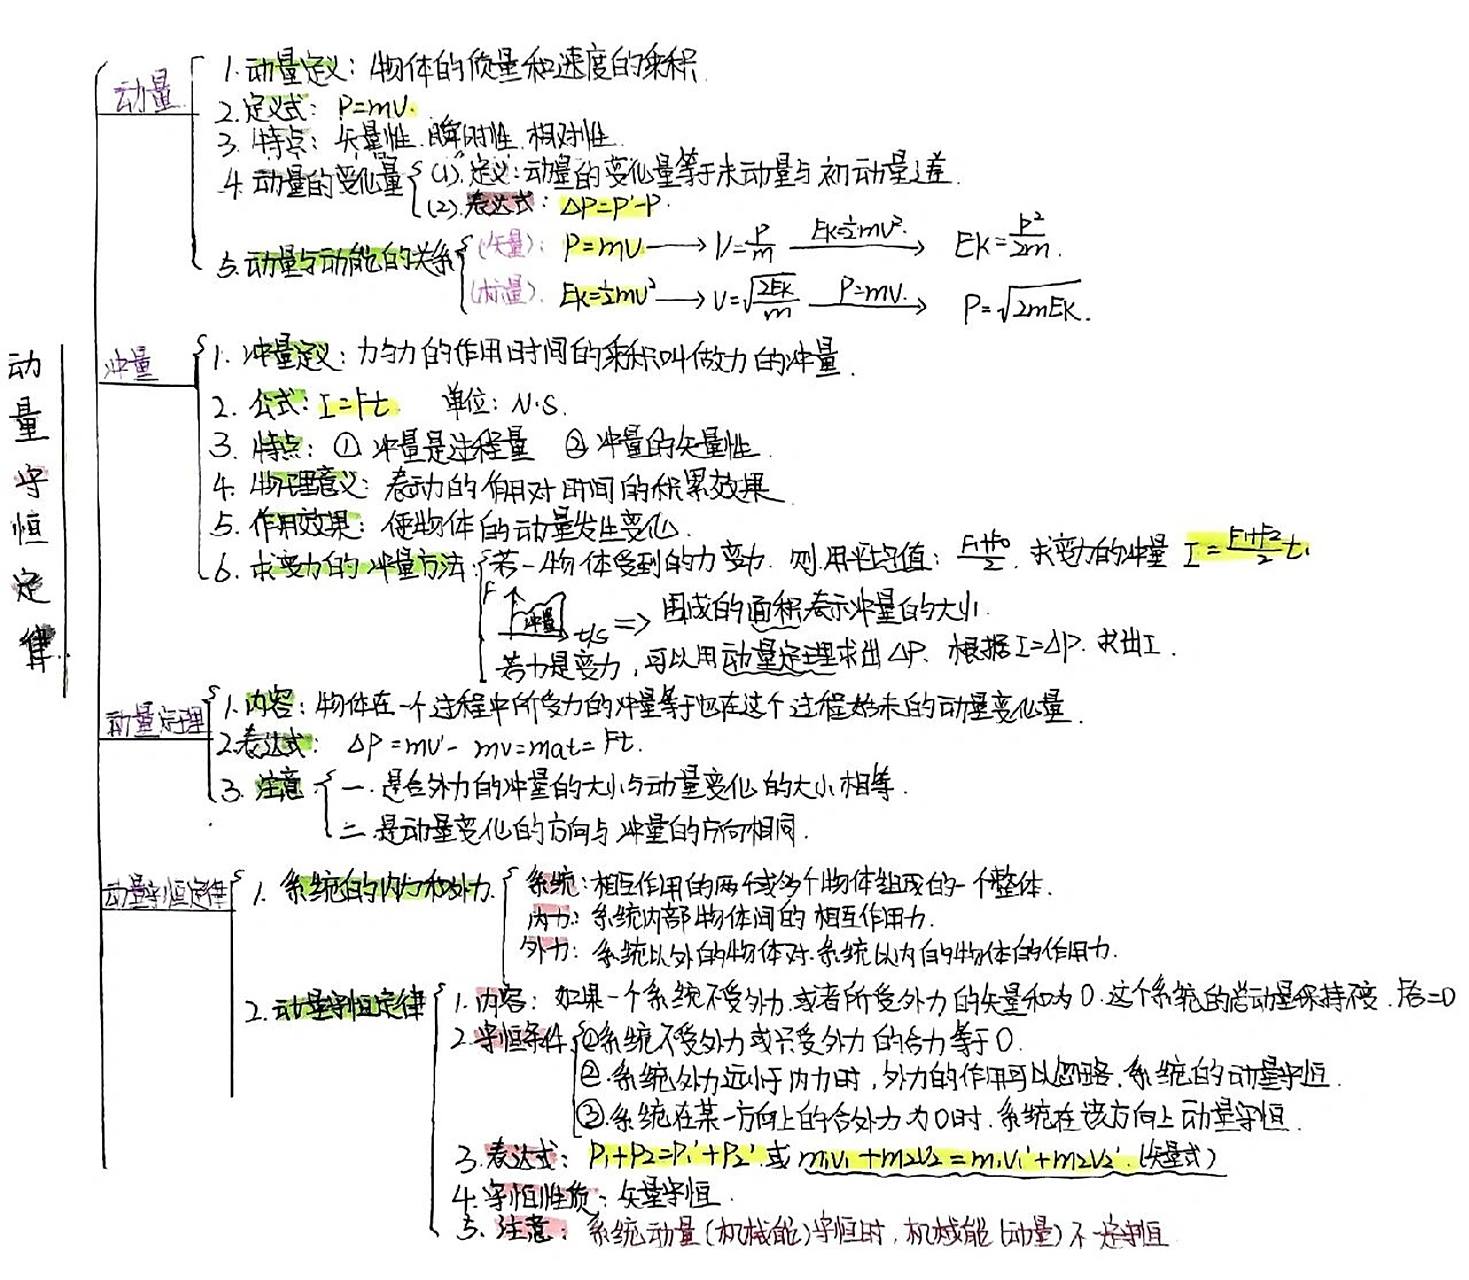 动量守恒定律
动量
1.动量定义：物体的质量和速度的乘积.
2.定义式：P=mv.
3.特点：矢量性.瞬时性.相对性.
4.动量的变化量
(1).定义:动量的变化量等于末动量与初动量之差.
(2).表达式：ΔP=P'-P.
5.动量与动能的关系
(矢量)：P=mv → V=P/m —Ek=½mv²→ Ek=P²/2m.
(标量).Ek=½mv² → v=√(2Ek/m) —P=mv.→ P=√2mEk.
冲量
1.冲量定义：力与力的作用时间的乘积叫做力的冲量.
2.公式:I=Ft 单位：N·S.
3.特点：①.冲量是过程量 ②冲量的矢量性.
4.物理意义：表示力的作用对时间的积累效果.
5.作用效果：使物体的动量发生变化.
6.求变力的冲量方法:
若一物体受到的力变力.则用平均值： .求变力的冲量 I=(F1+F2)/2 t.
F 冲量 t/s => 围成的面积表示冲量的大小.
若力是变力，可以用动量定理求出ΔP、根据I=ΔP.求出I.
动量定理
1.内容：物体在一个过程中所受力的冲量等于它在这个过程始末的动量变化量.
2.表达式： ΔP=mv'-mv=mat=Ft.
3.注意
一.是合外力的冲量的大小与动量变化的大小相等.
二.是动量变化的方向与冲量的方向相同.
动量守恒定律
1.系统的内力和外力.
系统:相互作用的两个或多个物体组成的一个整体.
内力：系统内部物体间的相互作用力.
外力：系统以外的物体对系统以内的物体的作用力.
2.动量守恒定律
1.内容：如果一个系统不受外力.或者所受外力的矢量和为0.这个系统的总动量保持不变.F合=0
2.守恒条件
①系统不受外力或只受外力的合力等于0.
②.系统外力远小于内力时,外力的作用可以忽略.系统的动量守恒.
③.系统在某一方向上的合外力为0时.系统在该方向上动量守恒.
3.表达式：P1+P2=P1'+P2'.或m1v1+m2v2=m1v1'+m2v2'.(矢量式)
4.守恒性质：矢量守恒.
5.注意：系统动量(机械能)守恒时,机械能(动量)不一定守恒